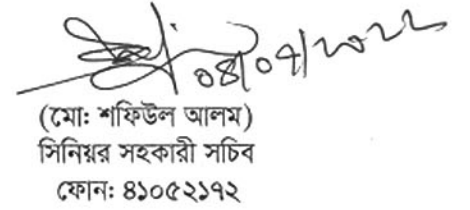 ০৪/০৭/২০২২
(মো: শফিউল আলম)
সিনিয়র সহকারী সচিব
ফোন: ৪১০৫২১৭২